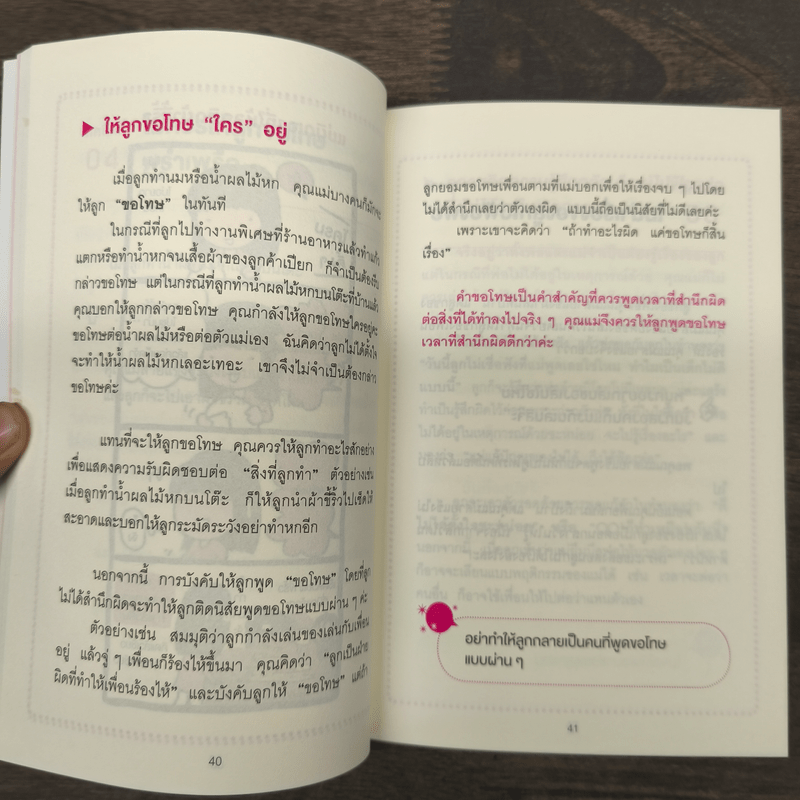 ▶ ให้ลูกขอโทษ “ใคร” อยู่
เมื่อลูกทำนมหรือน้ำผลไม้หก คุณแม่บางคนก็มักจะ
ให้ลูก “ขอโทษ” ในทันที
ในกรณีที่ลูกไปทำงานพิเศษที่ร้านอาหารแล้วทำแก้ว
แตกหรือทำน้ำหกจนเสื้อผ้าของลูกค้าเปียก ก็จำเป็นต้องรีบ
กล่าวขอโทษ แต่ในกรณีที่ลูกทำน้ำผลไม้หกบนโต๊ะที่บ้านแล้ว
คุณบอกให้ลูกกล่าวขอโทษ คุณกำลังให้ลูกขอโทษใครอยู่คะ
ขอโทษต่อน้ำผลไม้หรือต่อตัวแม่เอง ฉันคิดว่าลูกไม่ได้ตั้งใจ
จะทำให้น้ำผลไม้หกเลอะเทอะ เขาจึงไม่จำเป็นต้องกล่าว
ขอโทษค่ะ
แทนที่จะให้ลูกขอโทษ คุณควรให้ลูกทำอะไรสักอย่าง
เพื่อแสดงความรับผิดชอบต่อ “สิ่งที่ลูกทำ” ตัวอย่างเช่น
เมื่อลูกทำน้ำผลไม้หกบนโต๊ะ ก็ให้ลูกนำผ้าขี้ริ้วไปเช็ดให้
สะอาดและบอกให้ลูกระมัดระวังอย่าทำหกอีก
นอกจากนี้ การบังคับให้ลูกพูด “ขอโทษ” โดยที่ลูก
ไม่ได้สำนึกผิดจะทำให้ลูกติดนิสัยพูดขอโทษแบบผ่าน ๆ ค่ะ
ตัวอย่างเช่น สมมุติว่าลูกกำลังเล่นของเล่นกับเพื่อน
อยู่ แล้วจู่ ๆ เพื่อนก็ร้องไห้ขึ้นมา คุณคิดว่า “ลูกเป็นฝ่าย
ผิดที่ทำให้เพื่อนร้องไห้” และบังคับลูกให้ “ขอโทษ” แต่ถ้า
40
ลูกยอมขอโทษเพื่อนตามที่แม่บอกเพื่อให้เรื่องจบ ๆ ไปโดย
ไม่ได้สำนึกเลยว่าตัวเองผิด แบบนี้ถือเป็นนิสัยที่ไม่ดีเลยค่ะ
เพราะเขาจะคิดว่า “ถ้าทำอะไรผิด แค่ขอโทษก็สิ้น
เรื่อง”
คำขอโทษเป็นคำสำคัญที่ควรพูดเวลาที่สำนึกผิด
ต่อสิ่งที่ได้ทำลงไปจริง ๆ คุณแม่จึงควรให้ลูกพูดขอโทษ
เวลาที่สำนึกผิดดีกว่าค่ะ
อย่าทำให้ลูกกลายเป็นคนที่พูดขอโทษ
แบบผ่าน ๆ
41